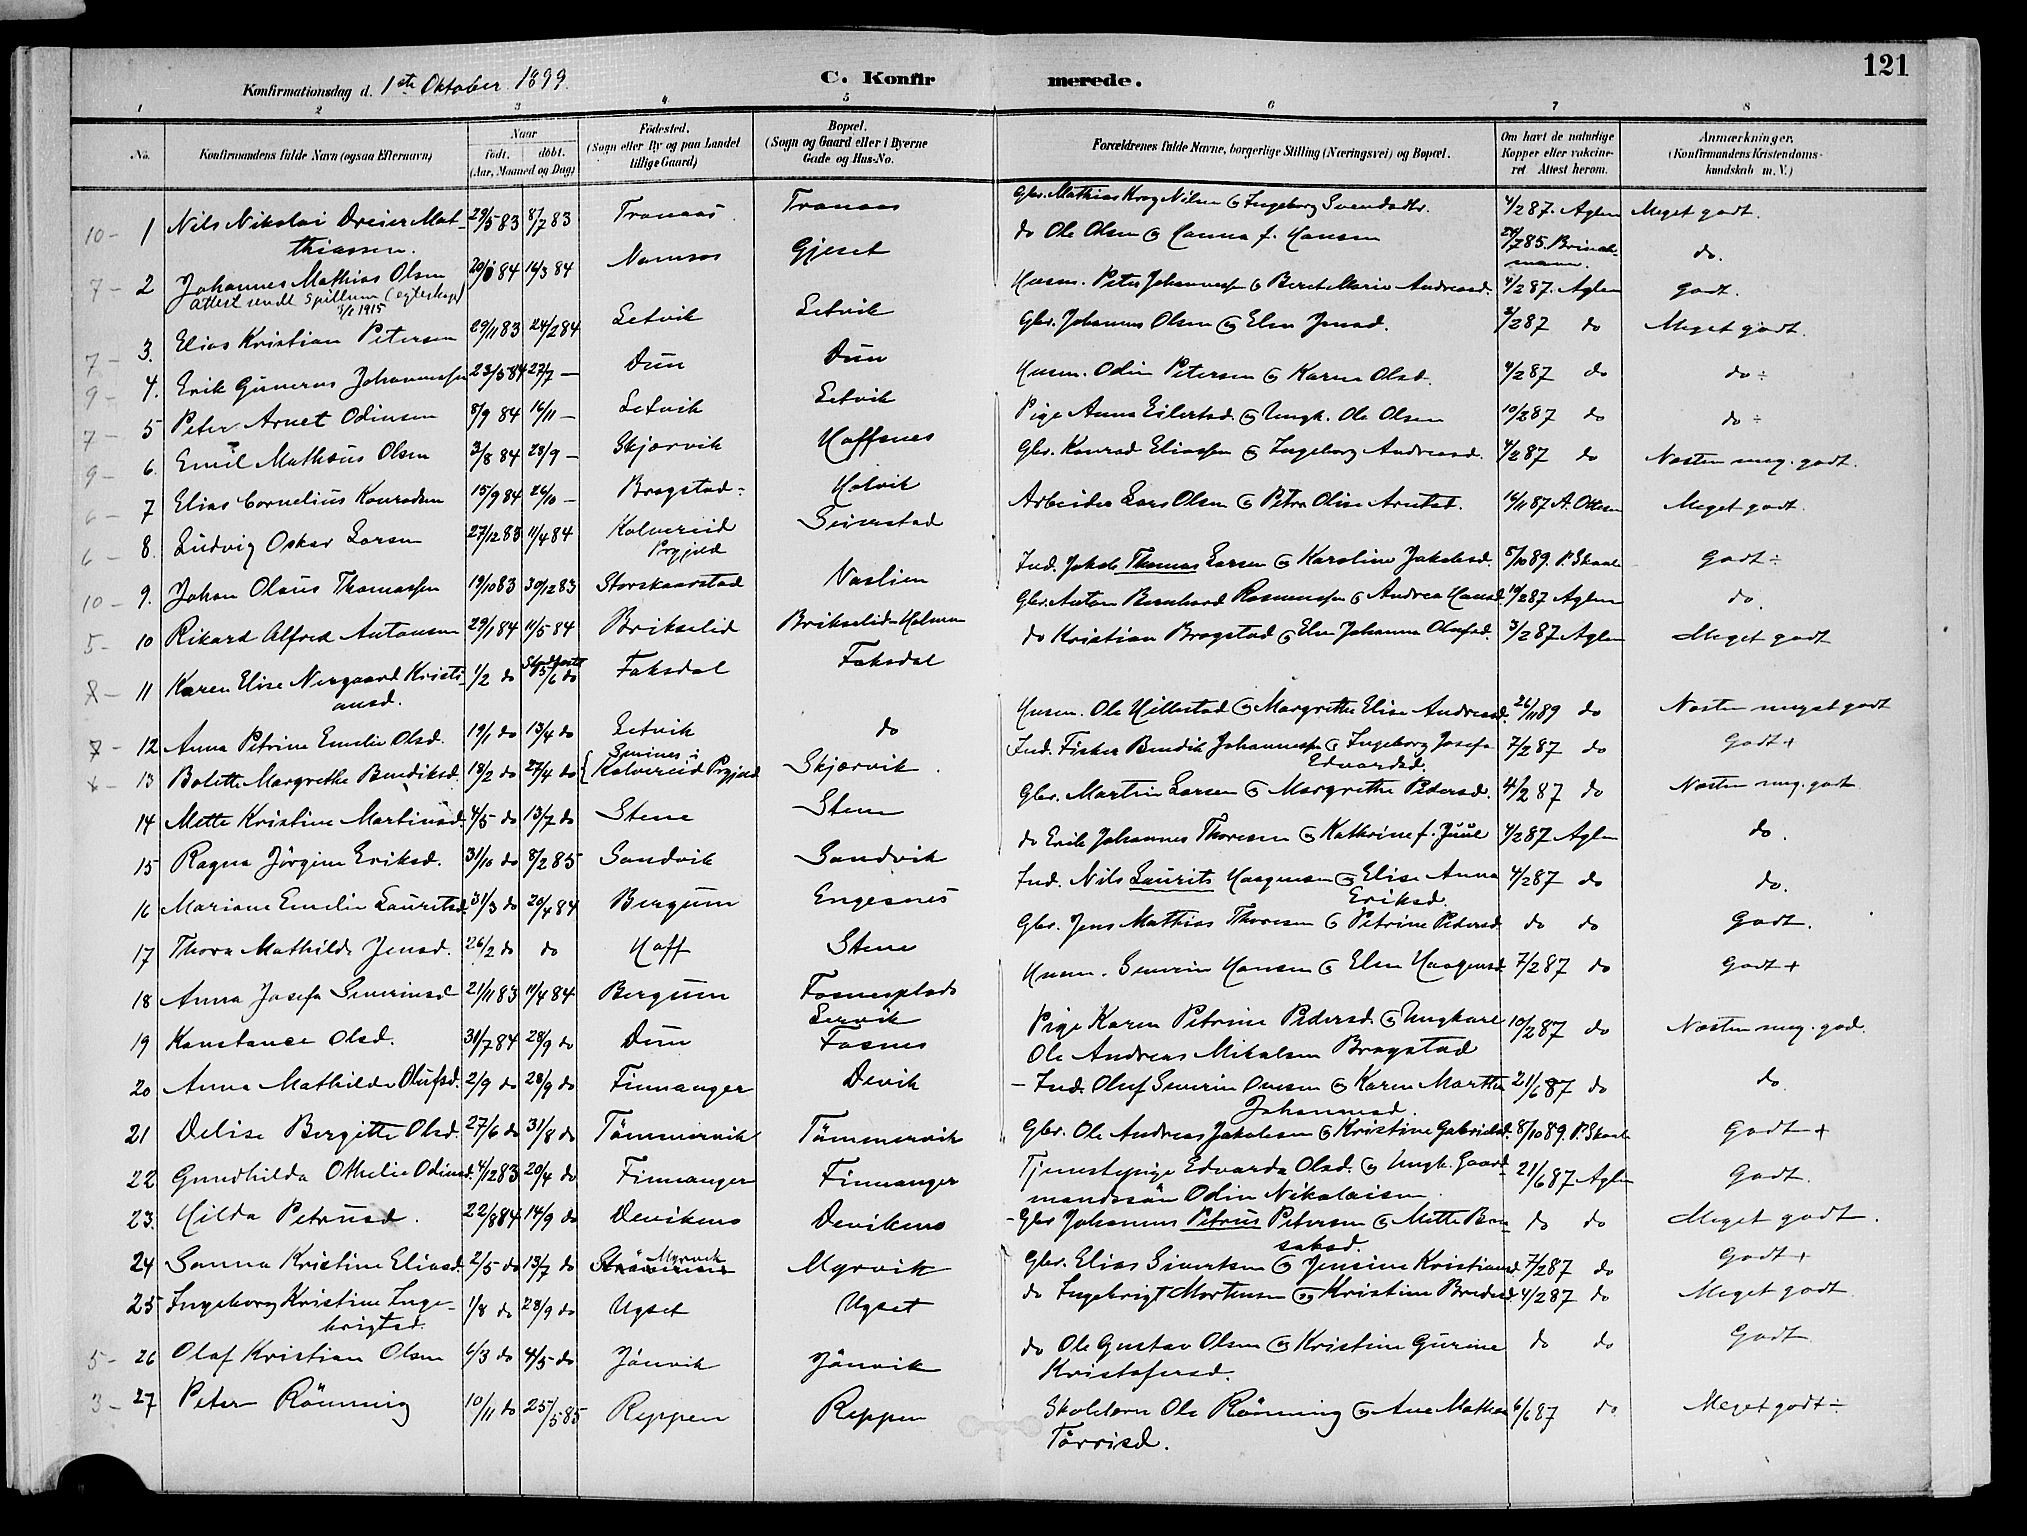 121
Konfirmationsdag d. 1ste Oktober 1899.
C. Konfirmerede.
1 2 3 4 5 6 7 8
No. Konfirmandens fulde Navn (ogsaa Efternavn) Naar født. døbt. (Aar, Maaned og Dag) Fødested. (Sogn eller By og paa Landet tillige Gaard) Bopæl. (Sogn og Gaard eller i Byerne Gade og Hus-No. Forældrenes fulde Navne, borgerlige Stilling (Næringsvei) og Bopæl. Om havt de naturlige Kopper eller vakcineret Attest herom. Anmærkninger. (Konfirmandens Kristendomskundskab m. V.)
10- 1 Nils Nikolai Dreier Mat- 29/5 83 8/7 83 Tranaas Tranaas Gbr. Mathias Krog Nilsen & Ingeborg Svendsdtr. 4/2 87. Aglen Meget godt.
thiassen.
7- 2 Johannes Mathias Olsen 84 16/3 84 Namsos Gjeset do Ole Olsen & Hanna f. Hansen /7 85. Brinchmann. do.
attest sendt Spillum (egteskap) 1915
7- 3. Elias Kristian Petersen 29/11 83 24/2 84 Setvik Setvik Husm. Peter Johannessen & Beret Marie Andreasd. 4/2 87. Aglen Godt.
9- 4. Erik Gunerus Johannessen 23/5 84 27/7 — Dun Dun Gbr. Johannes Olsen & Elen Jensd. 2/2 87 do Meget godt.
7- 5 Peter Arnet Odinsen 8/9 84 16/11 — Setvik Setvik Husm. Odin Petersen & Karen Olsd. 4/2 87 do do ÷
9- 6. Emil Mathæus Olsen 3/8 84 28/9 — Skjærvik Hoffsnes Pige Anna Eilertsd. & Ungk. Ole Olsen 10/2 87 do do ÷
6- 7 Elias Cornelius Konradsen 15/9 84 26/10 — Bragstad Halvik Gbr. Konrad Eliassen & Ingeborg Andreasd. 4/2 87 do Næsten meg. godt.
6- 8. Ludvig Oskar Larsen 27/12 83 11/4 84 Kolvereid Prgjeld Seierstad Arbeider Lars Olsen & Petra Oline Arntsd. 16/11 87 A. Ottesen Meget godt.
10- 9. Johan Olaus Thomassen 19/10 83 30/12 83 Storskaarstad Vaslien Ind. Jakob Thomas Larsen & Karoline Jakobsd. 5/10 89. P. Skaale Godt ÷
5- 10 Rikard Alfred Antonsen 29/1 84 11/5 84 Brikselid Brikselid-Holmen Gbr. Anton Bernhard Rasmussen & Andrea Hansd. 10/2 87 Aglen do.
8- 11 Karen Elise Nergaard Kristi- 1/2 do /6 do Faksdal Faksdal do Kristian Bragstad & Elen Johanna Olufsd. 3/2 87 Aglen Meget godt
ansd.
7- 12 Anna Petrine Emelie Olsd. 19/1 do 13/4 do Setvik do Husm. Ole Hillestad & Margrethe Elise Andreasd. 26/11 89 do Næsten meget godt
13 Bolette Margrethe Bendiksd. 18/2 do 27/4 do Kolvereid Prgjeld Skjærvik. Ind. Fisker Bendik Johannessen & Ingeborg Josefa Edvardsd. 7/2 87 do Godt +
14 Mette Kristine Martinusd. 4/5 do 13/7 do Stene Stene Gbr. Martin Larsen & Margrethe Pedersd. 4/2 87 do Næsten meg. godt
15 Ragna Jørgine Eriksd. 31/10 do 8/2 85 Sandvik Sandvik do Erik Johannes Thoresen & Kathrine f. Juul 4/2 87 Aglen do.
16 Mariane Emelie Lauritsd. 31/3 do 20/4 84 Bergum Engesnes Ind. Nils Laurits Haagensen & Elise Anna Eriksd. 4/2 87 do do.
17 Thora Mathilde Jensd. 26/2 do do Hoff Stene Gbr. Jens Mathias Thoresen & Petrine Pedersd do do Godt.
18 Anna Josefa Severinsd 21/11 83 11/4 84 Bergum Fosnesplads Husm. Severin Hansen & Elen Haagensd. 7/2 87 do Godt +
19 Konstance Olsd. 31/7 84 28/9 do Dun Servik Fosnes Pige Karen Petrine Pedersd. & Ungkarl Ole Andreas Mikalsen Bragstad 10/2 87 do Næsten meg. god.
20 Anna Mathilde Olufsd. 2/9 do 28/9 do Finnanger Devik - Ind. Oluf Severin Ovesen & Karen Martha Johannesd. 21/6 87 do do.
21 Delise Bergitte Olsd. 27/6 do 31/8 do Tømmervik Tømmervik Gbr. Ole Andreas Jakobsen & Kristine Gabrielsd. 8/10 89. P. Skaale Godt +
22 Gundhilda Othelie Odinsd. 4/12 83 20/4 do Finnanger Finnanger Tjenestepige Edvarda Olsd. & Ungk. Gaardmandssøn Odin Nikolaisen 21/6 87 Aglen Godt.
23. Hilda Petrusd. 22/8 84 14/9 do Deviknes Deviknes - Gbr Johannes Petrus Petersen & Mette Ben- saksd. do do Meget godt.
24 Sanna Kristine Eliasd. 2/5 do 13/7 do Myrvik Myrvik Gbr. Elias Sivertsen & Jensine Kristiansd. 7/2 87 do Godt +
25 Ingeborg Kristine Inge- 1/8 do 28/9 do Ugset Ugset do Ingebrigt Mortensen & Kristine Bredesd. 4/2 87 do Meget godt
brigtsd.
5- 26 Olaf Kristian Olsen 6/3 do 4/5 do Jønvik Jønvik do Ole Gustav Olsen & Kristine Gurine Kristofersd. do do Godt
3- 27 Peter Rønning 10/11 do 25/5 85 Reppen Reppen Skolelærer Ole Rønning & Ane Mathea Tørrisd. 6/6 87 do Meget godt ÷